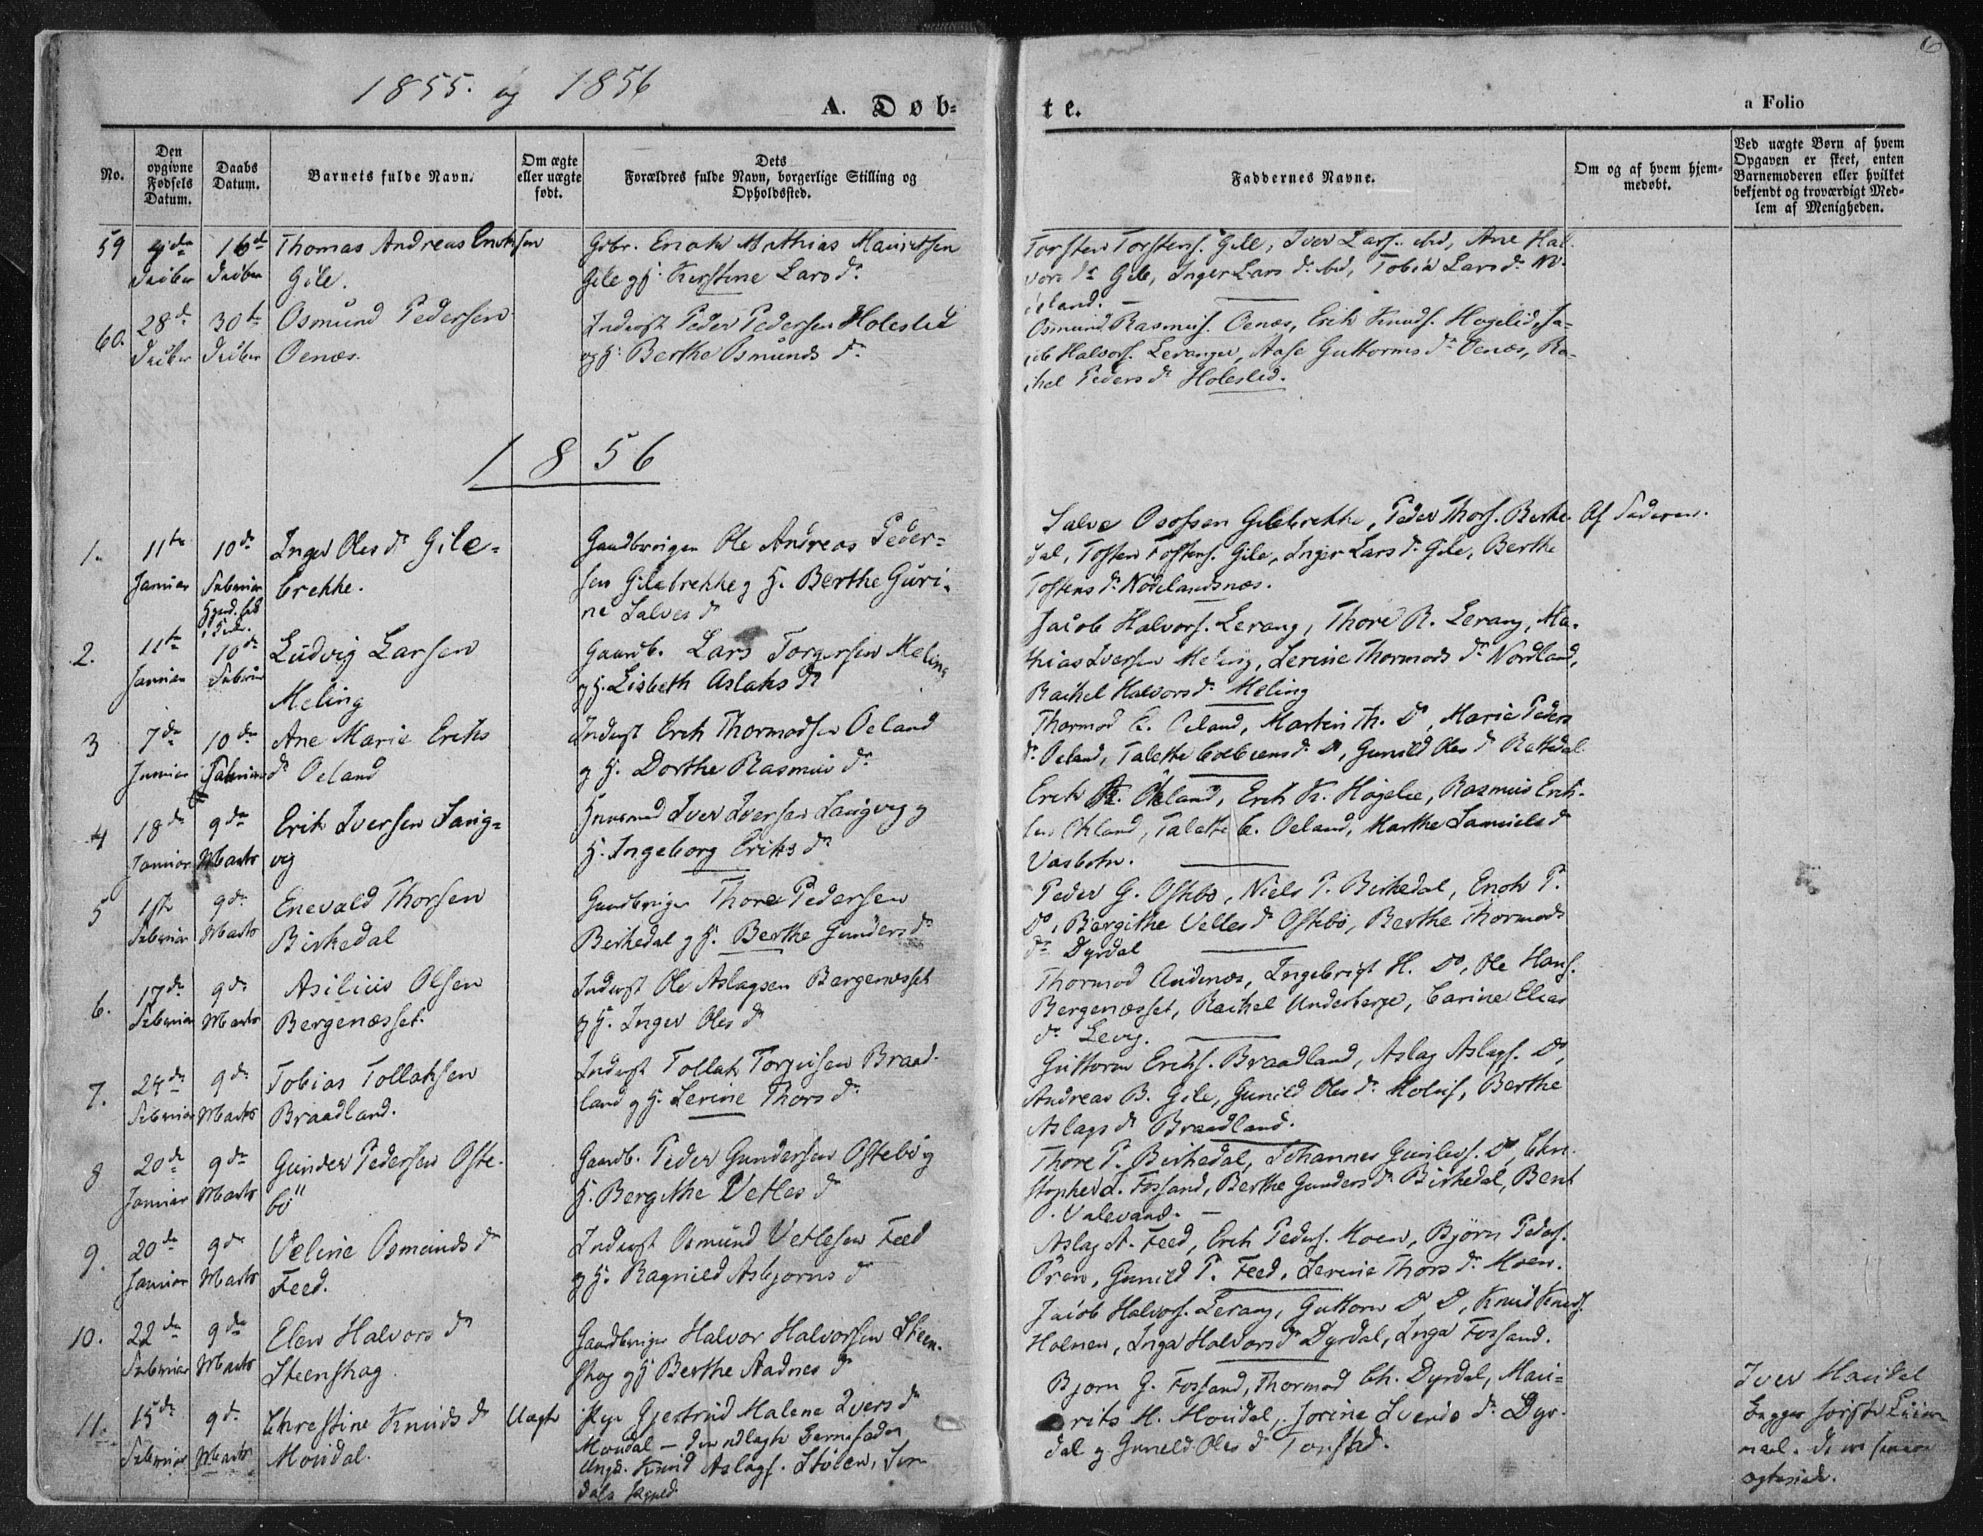 6
1855. og 1856
A. Døb-
te.
a Folio
No.
Den opgivne Fødsels Datum.
Daabs Datum.
Barnets fulde Navn.
Om ægte eller uægte født.
Dets Forældres fulde Navn, borgerlige Stilling og Opholdssted.
Faddernes Navne.
Om og af hvem hjemmedøbt.
Ved uægte Børn af hvem Opgaven er skeet, enten Barnemoderen eller hvilket bekjendt og troværdigt Medlem af Menigheden.
59
16de
Thomas Andreas Enoksen
Gile.
Gbr. Enok Mathias Mauritsen
Gile og H. Kirstine Lars Dr
Torsten Torstens. Gile, Iver Lars. ibid, Ane Hal-
vors Dr Gile, Inger Lars Dr ibid, Tobia Lars Dr
60.
28de
30te
Osmund Pedersen
Oenæs.
Inderst Peder Pedersen Holeslid
og H. Berthe Osmunds Dr
Osmund Rasmus. Oenæs, Erik Knuds. Høgelid, Ja-
cob Halvors. Leranger, Aase Guttorms Dr Oenæs, Ra-
chel Peders Dr Holeslid.
1856
1.
11te
Januar
10de
Februar
Inger Oles Dr Gile-
brekke.
Gaardbrugen Ole Andreas Peder-
sen Gilebrekke og H. Berthe Guri-
ne Salves Dr
Salve Gilebrekke, Peder Thors. Birke-
dal, Tosten Tostens. Gile, Inger Lars Dr Gile, Berthe
Tostens Dr Nødelandsnæs.
Af Faderen.
2.
11te
Januar
10de
Februar
Ludvig Larsen
Meling
Gaardb. Lars Torgersen Meling
og H. Lisbeth Aslaks Dr
Jacob Halvors. Lerang, Thore R. Lerang, Ma-
thias Iversen Meling, Serine Thormods Dr Nordland,
Rachel Halvors Dr Meling
3
7de
Januar
10de
Februar
Ane Marie Eriks
Dr Oeland
Inderst Erik Thormodsen Oeland
og H. Dorthe Rasmus Dr
Thormod E. Oeland, Martin Th. Do, Marie Peders
Dr Oeland, Talette Dr Do, Gunild Oles Dr Rettedal
4
18de
Januar
9de
Marts
Erik Iversen Sang-
vig
Husmand Iver Iversen Sangvig og
H. Ingeborg Eriks Dr
Erik Økland, Erik K. Høgelie, Rasmus Erik-
sen Økland, Talette C. Oeland, Marthe Samuels Dr
Vasbotn.
5
Februar
9de
Marts
Enevald Thorsen
Birkedal
Gaardbruger Thore Pedersen
Birkedal og H. Berthe Gunders Dr
Peder G. Østebø, Niels P. Birkedal, Enok P.
Do, Bergithe Vetles Dr Østebø, Berthe Thormods
Dr Dyrdal
6.
17de
Februar
9de
Marts
Asilius Olsen
Bergenæsset.
Inderst Ole Aslagsen Bergenæsset
og H. Inger Oles Dr
Thormod Audenæs, Ingebrigt H. Do, Ole Hans.
Bergenæsset, Rachel Underberge, Carine Elias
Dr Levig.
7.
24de
Februar
9de
Marts
Tobias Tollaksen
Braadland.
Inderst Tollak Torjusen Braad-
land og H. Serine Thors Dr
Guttorm Eriks. Braadland, Aslag Aslags. Do,
Andreas B. Gile, Gunild Oles Dr Berthe
Aslags Dr Braadland.
8
20de
Januar
9de
Marts
Gunder Pedersen Øste-
bø
Gaardb. Peder Gundersen Østebø og
H. Bergithe Vetles Dr
Thore P. Birkedal, Johannes Do, Chri-
stopher Fossand, Berthe Gunders Dr Birkedal, Berit
Valevand.
9.
20de
Januar
9de
Marts
Veline Osmunds Dr
Feed.
Inderst Osmund Vetlesen Feed
og H. Ragnild Asbjørns Dr
Aslag A. Feed, Erik Peders. Moen, Bjørn Peders.
Ören, Gunild P. Feed, Serine Thors Dr Moen.
10.
22de
Februar
9de
Marts
Elen Halvors Dr
Steenskog
Gaardbruger Halvor Halvorsen Steen-
skog og H Berthe Aadnes Dr
Jacob Halvors. Lerang, Guttorm Do Do, Knud Knuds.
Holmen, Inga Halvors Dr Dyrdal, Inga Fossand.
11.
15de
Februar
9de
Marts
Christine Knuds Dr
Moudal.
Uægte
Pige Gjertrud Malene Ivers Dr
Moudal — den udlagte Barnefader
Ungk. Knud Aslags. Stølen,
Bjørn G. Fossand, Thormod Ch. Dyrdal, Mau-
rits M. Moudal, Jorine Svends Dr Dyr-
dal og Gunild Oles Dr
Iver Maudal
Begges første